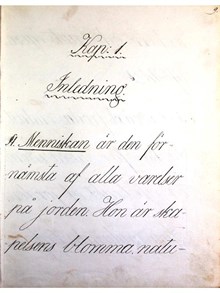 Kap: 1.
Inledning.
Menniskan är den för-
nämsta af alla varelser
på jorden. Hon är ska-
pelsens blomma, natu-